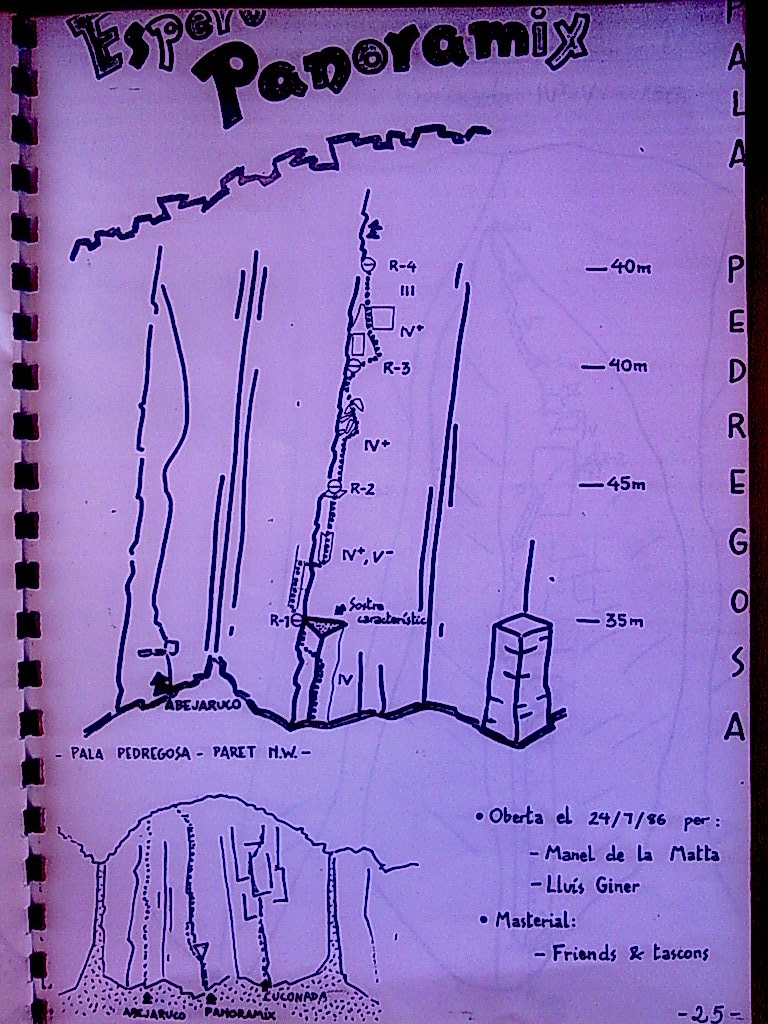 Esperó
Panoramix
PALA PEDREGOSA
R-4
40m
III
IV+
R-3
40m
IV+
R-2
45m
IV+, V-
Sostre
característic
R-1
35m
IV
ABEJARUCO
- PALA PEDREGOSA - PARET N.W. -
• Oberta el 24/7/86 per:
- Manel de la Matta
- Lluís Giner
• Masterial:
- Friends & tascons
LUCONADA
ABEJARUCO
PANORAMIX
-25-